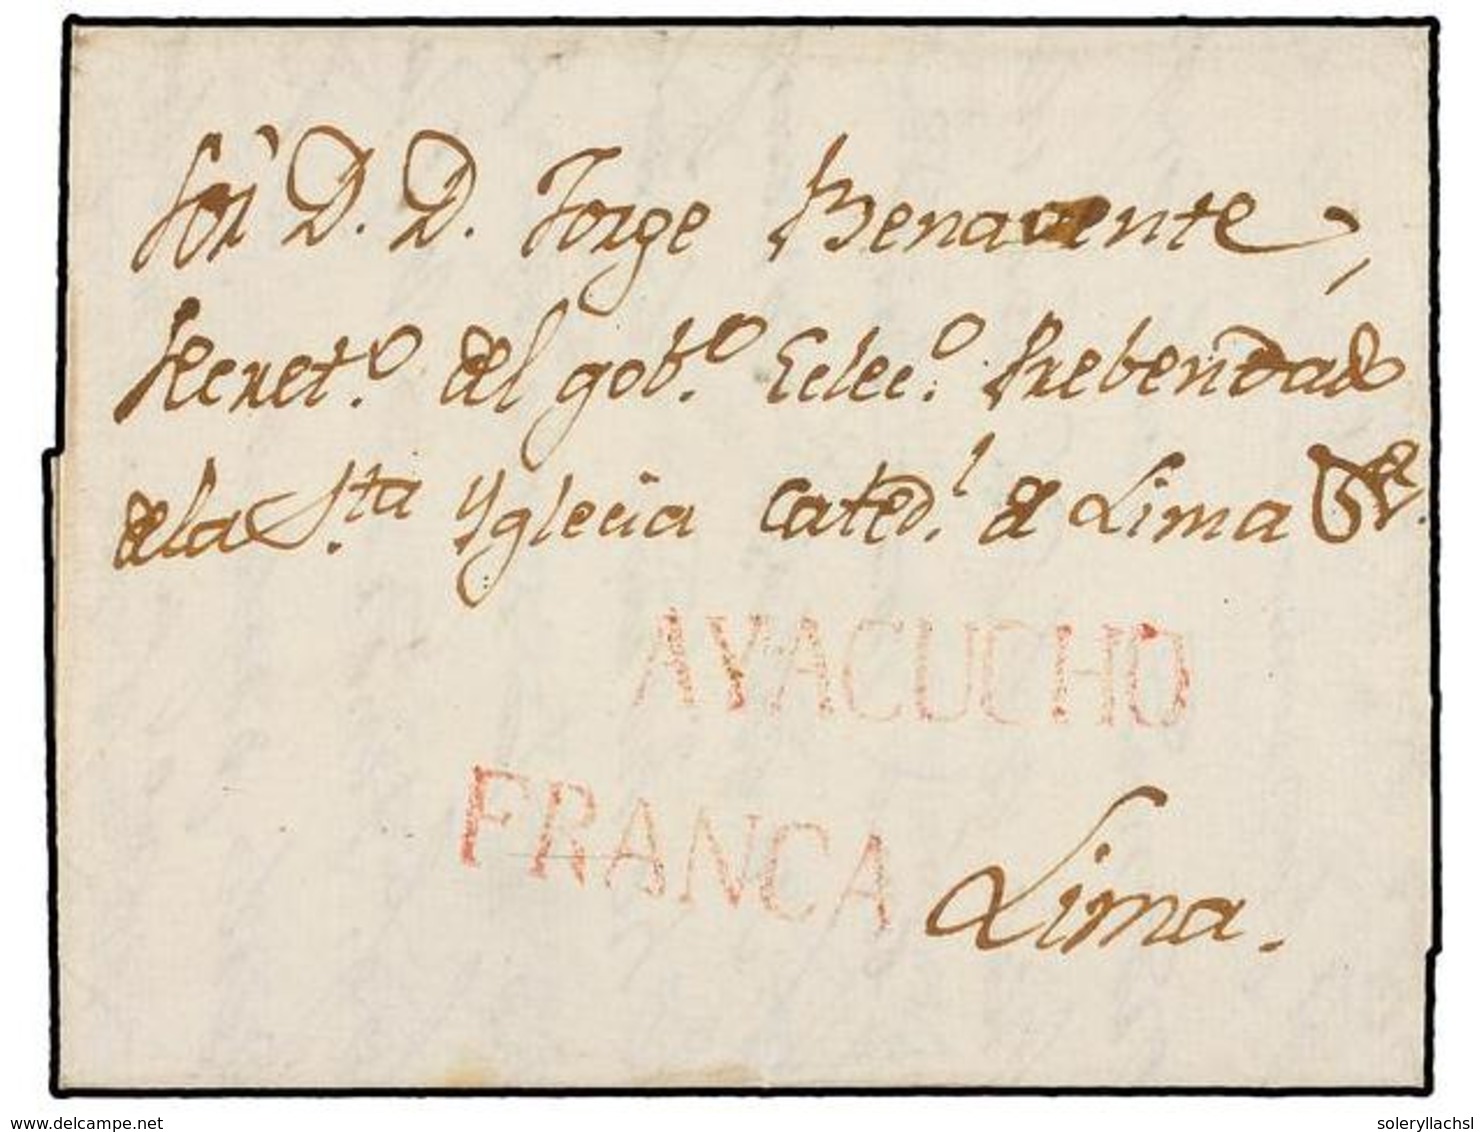 Sor D. D. Jorge Benavente,
Secret.o del gob.o Eclec.o Prebendado
de la S.ta Yglecia Cated.l de Lima &a.
AYACUCHO
FRANCA
Lima.
www.delcampe.net
soleryllachsl